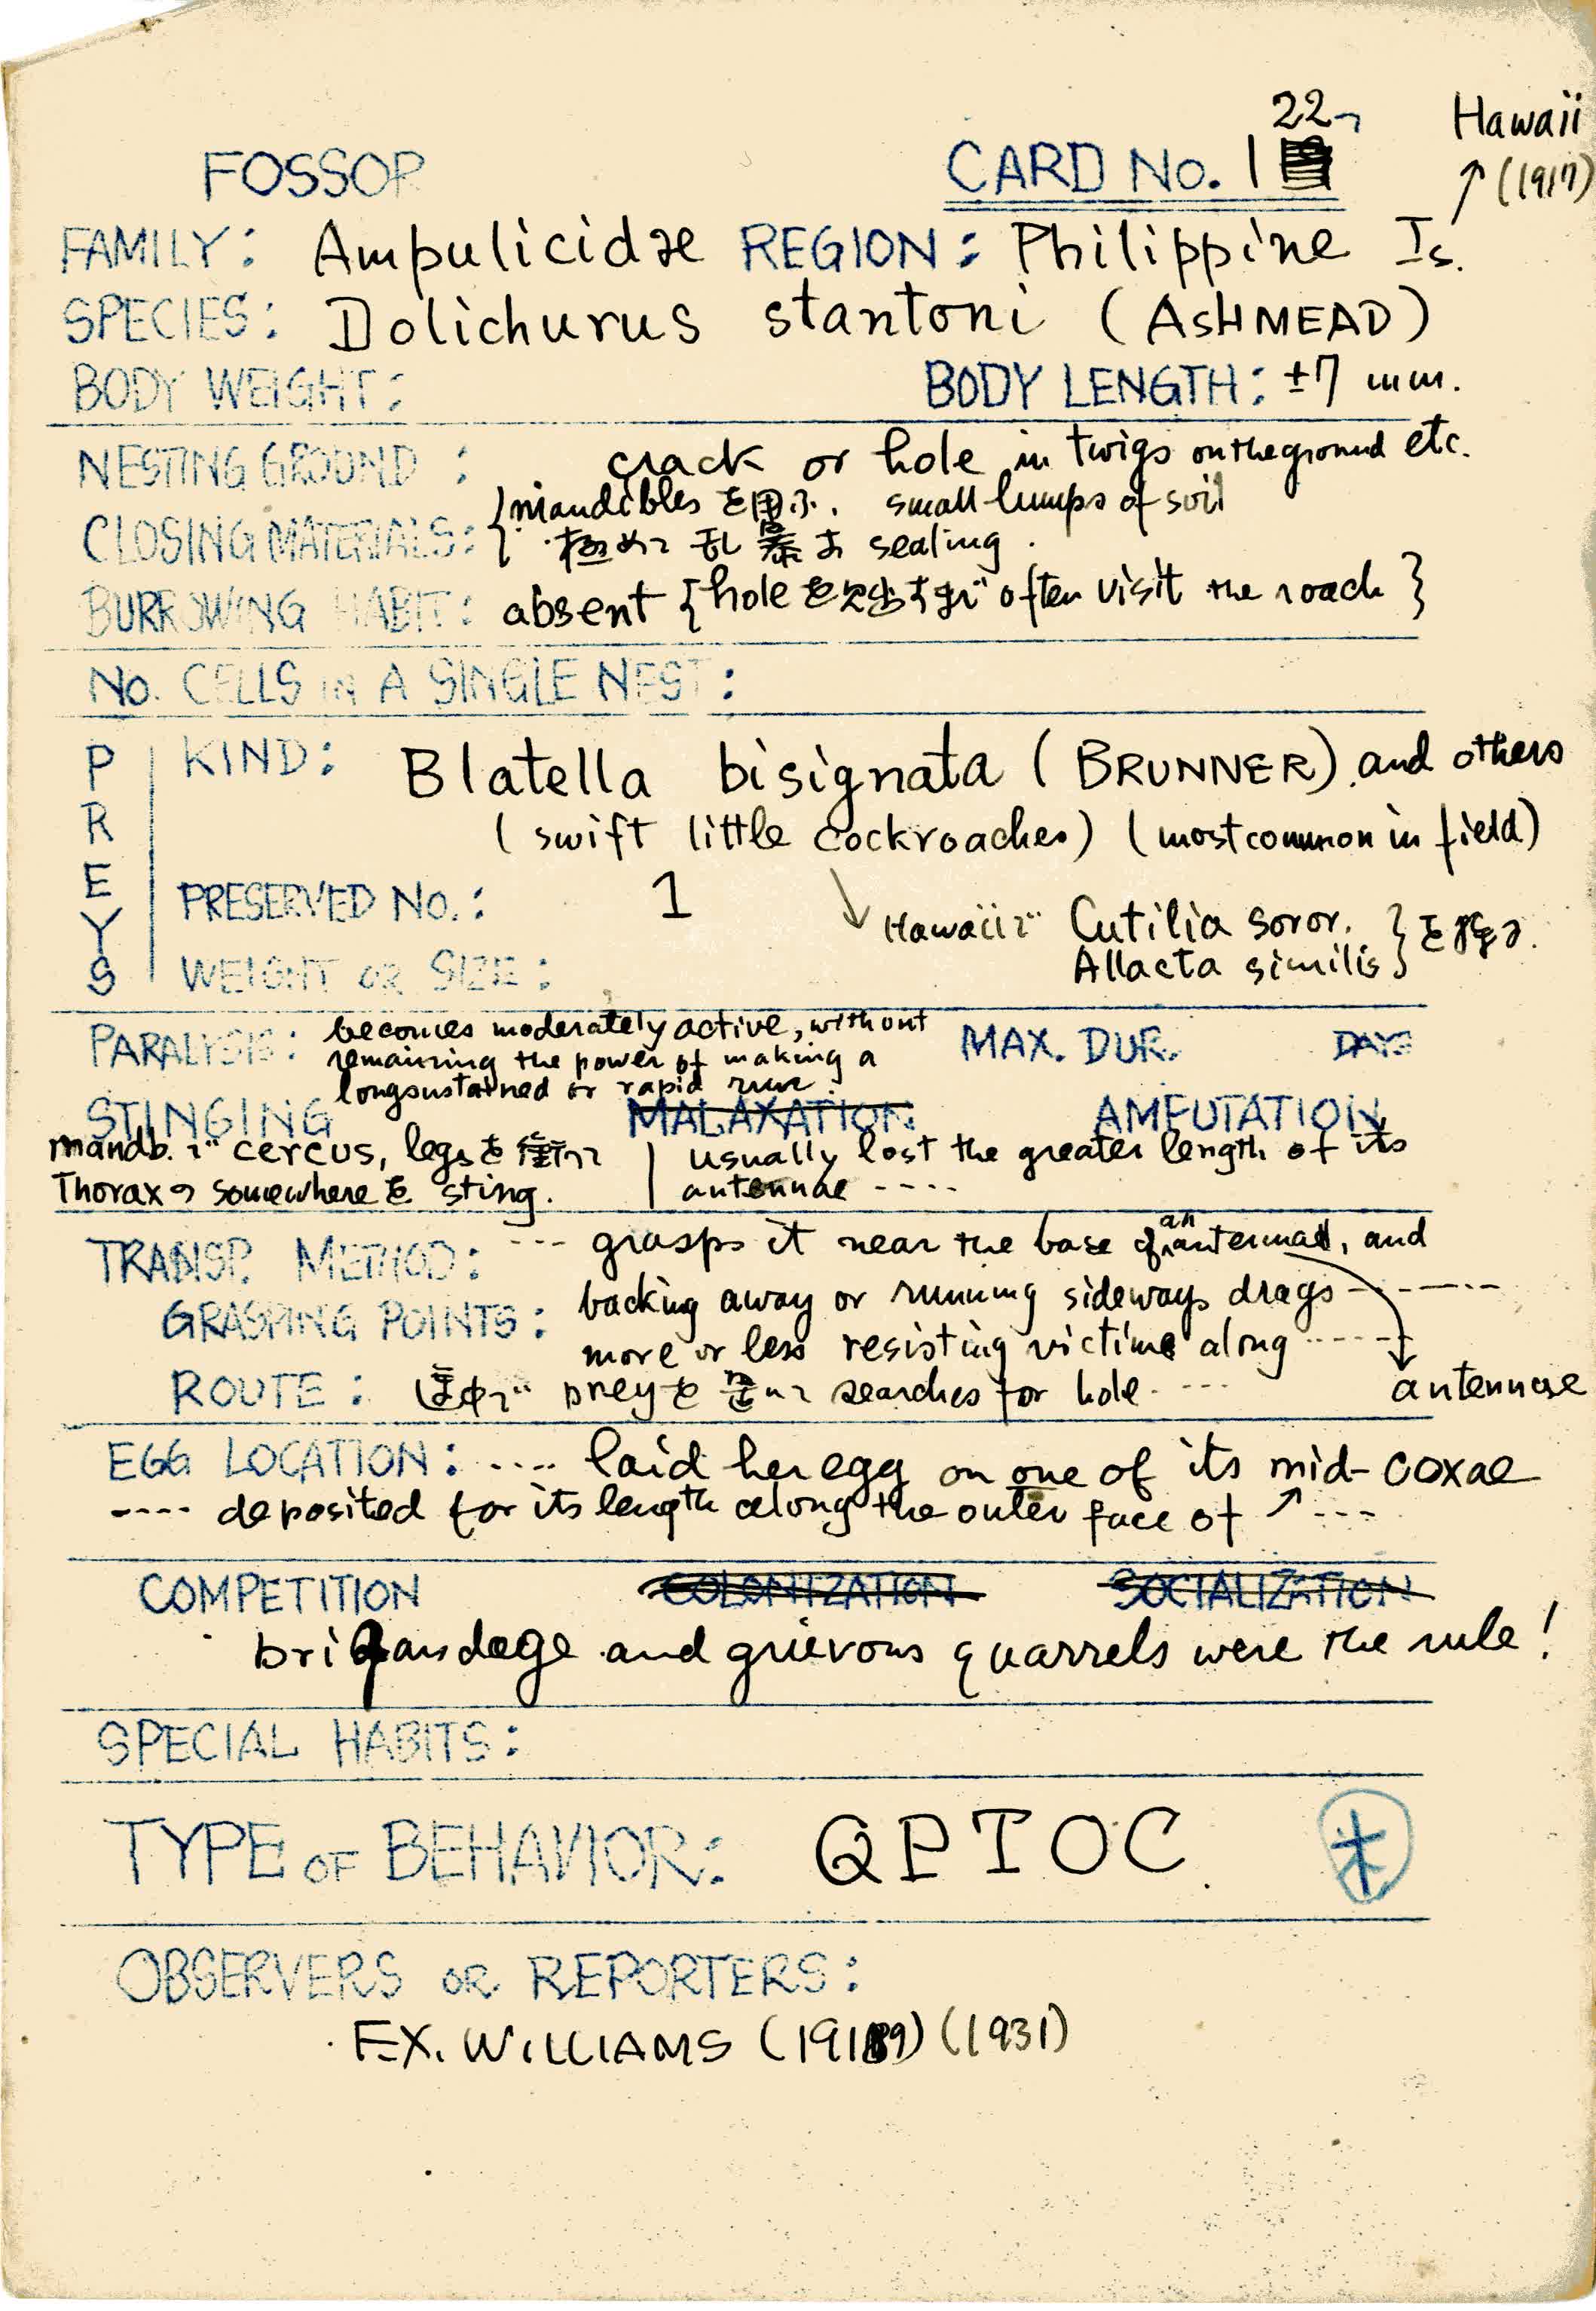 22
Hawaii
FOSSOR CARD No. 1
↑ (1917)
FAMILY: Ampulicidae REGION: Philippine Is.
SPECIES: Dolichurus stantoni (ASHMEAD)
BODY WEIGHT: BODY LENGTH: ±7 mm.
NESTING GROUND : crack or hole in twigs on the ground etc.
CLOSING MATERIALS: { mandibles を用ふ. small lumps of soil
極めて乱暴な sealing.
BURROWING HABIT: absent { hole を often visit the roach }
No. CELLS IN A SINGLE NEST:
PREYS
KIND: Blatella bisignata (BRUNNER) and others
(swift little cockroaches) (most common in field)
PRESERVED No.: 1
↓ Hawaiiで Cutilia soror.
Allacta similis } を
WEIGHT OR SIZE:
PARALYSIS: becomes moderately active, without
remaining the power of making a
long sustained or rapid run.
MAX. DUR. DAYS
STINGING MALAXATION AMPUTATION
mandb. で cercus, legs を
usually lost the greater length of its
Thorax の somewhere を sting.
antennae ----
TRANSP. METHOD: --- grasps it near the base of an antennae, and
GRASPING POINTS: backing away or running sideways drags ------
more or less resisting victime along -----
ROUTE: 途中で prey を 置いて searches for hole ----
antennae
EGG LOCATION: .... laid her egg on one of its mid-coxae
---- deposited for its length along the outer face of ↗ ---
COMPETITION COLONIZATION SOCIALIZATION
brigandage and grievous quarrels were the rule!
SPECIAL HABITS:
TYPE OF BEHAVIOR: QPTOC.
OBSERVERS OR REPORTERS:
F.X. WILLIAMS (1919) (1931)